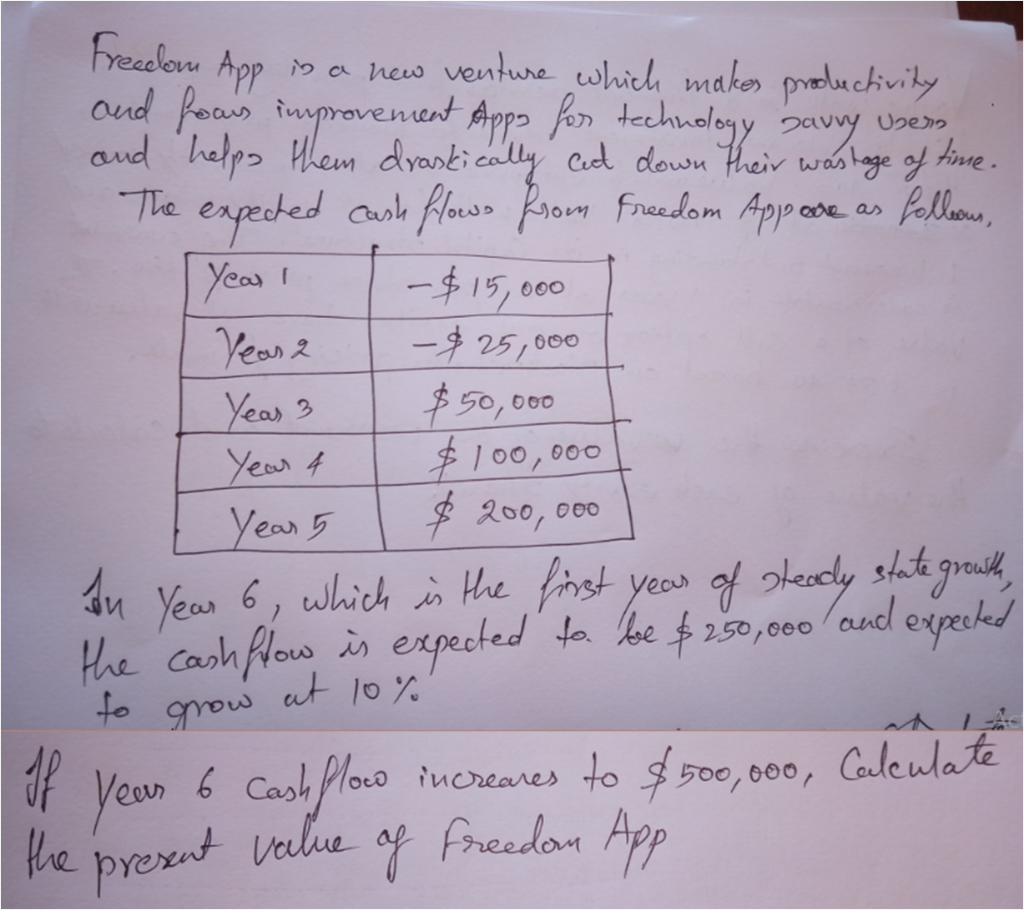 Freedom App is a new venture which makes productivity
and focus improvement Apps for technology savvy users
and helps them drastically cut down their wastage of time.
The expected cash flows from Freedom App are as follows,
Year 1 -$ 15,000
Year 2 -$ 25,000
Year 3 $ 50,000
Year 4 $ 100,000
Year 5 $ 200,000
In Year 6, which is the first year of steady state growth,
the cashflow is expected to be $ 250,000 and expected
to grow at 10 %
If Year 6 Cashflow increases to $ 500,000, Calculate
the present value of Freedom App